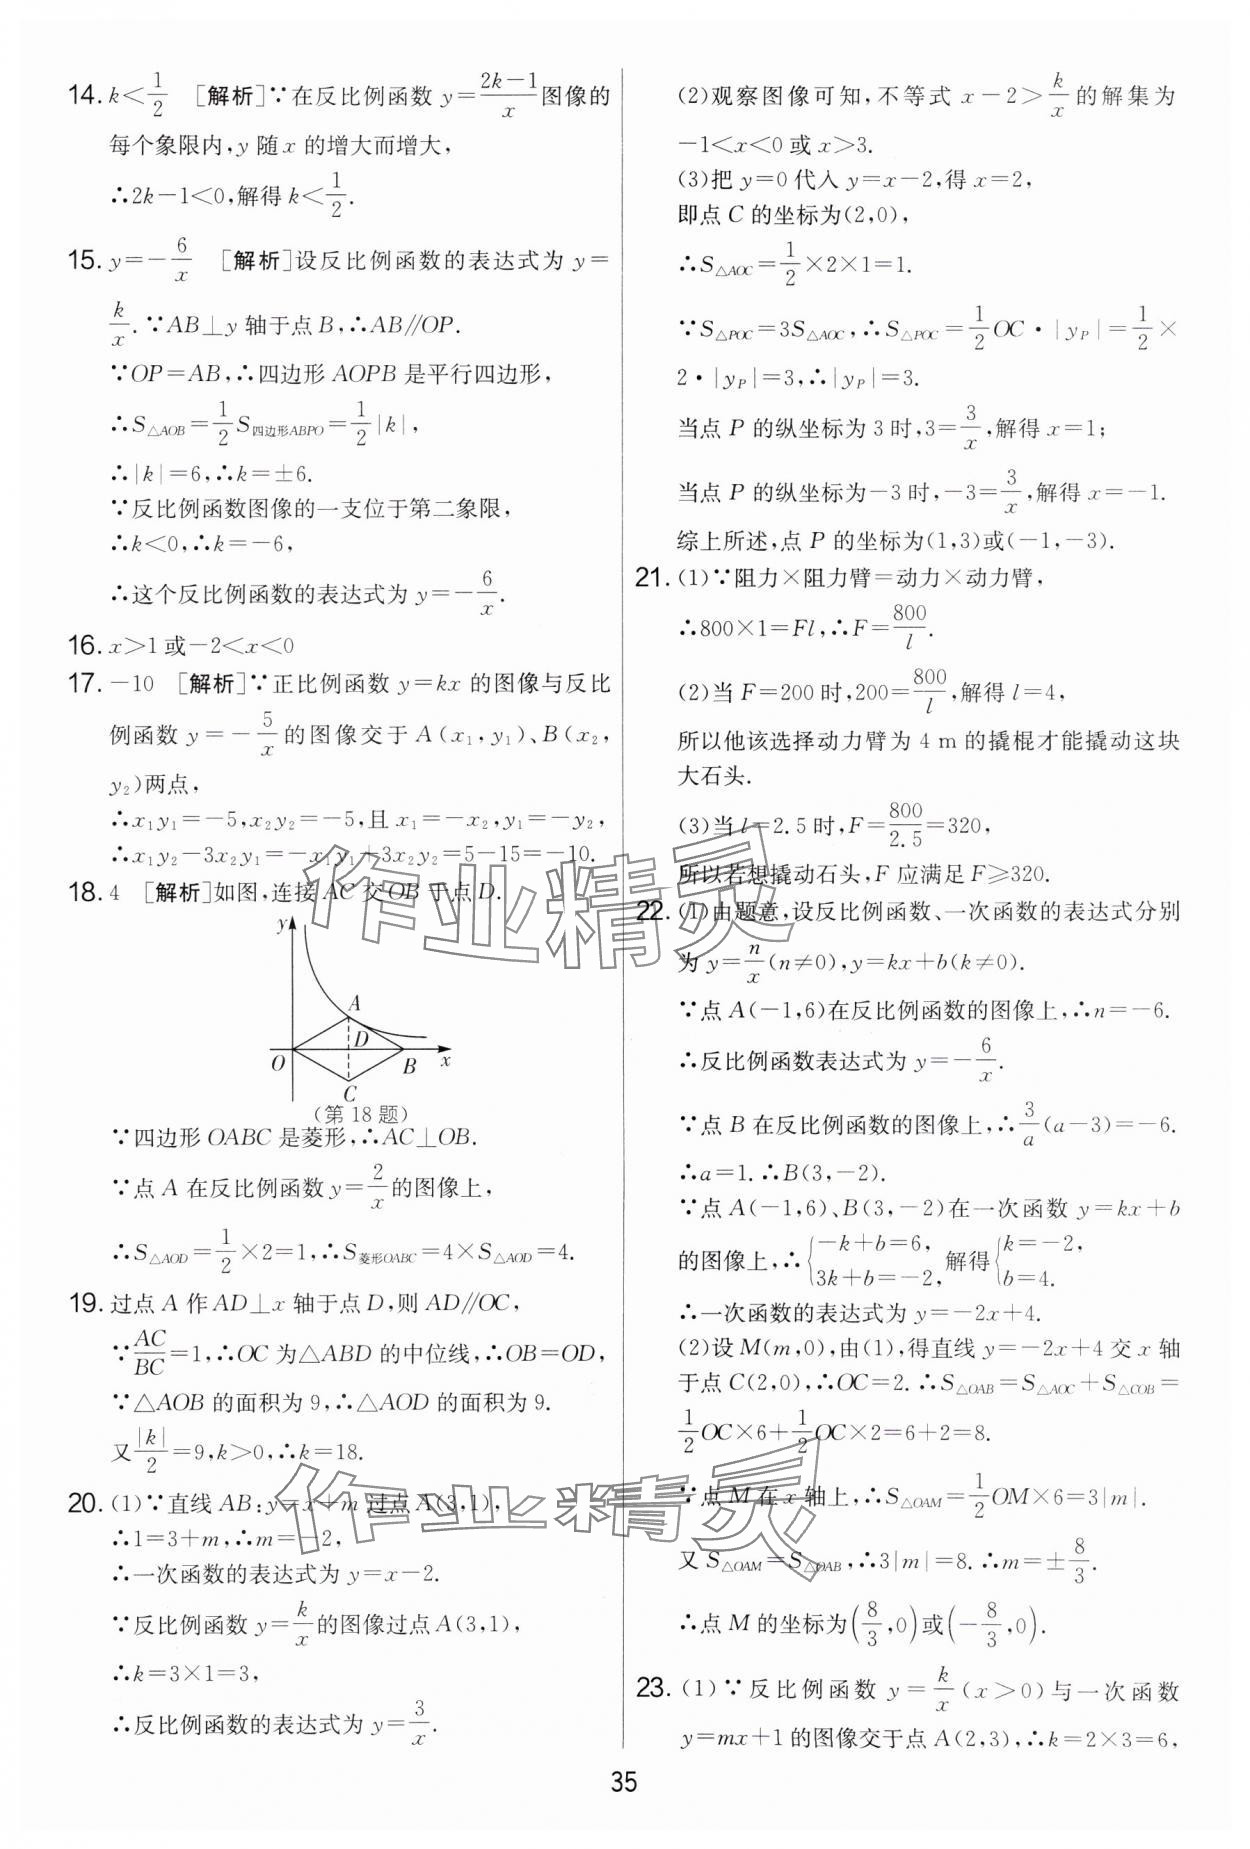 14. k<1/2 [解析]∵在反比例函数 y=(2k-1)/x 图像的
每个象限内,y 随 x 的增大而增大,
∴2k-1<0,解得 k<1/2.
15. y=-6/x [解析]设反比例函数的表达式为 y=
k/x.∵AB⊥y 轴于点 B,∴AB∥OP.
∵OP=AB,∴四边形 AOPB 是平行四边形,
∴S△AOB=1/2 S四边形ABPO=1/2|k|,
∴|k|=6,∴k=±6.
∵反比例函数图像的一支位于第二象限,
∴k<0,∴k=-6,
∴这个反比例函数的表达式为 y=-6/x.
16. x>1 或-2<x<0
17. -10 [解析]∵正比例函数 y=kx 的图像与反比
例函数 y=-5/x 的图像交于 A(x₁,y₁)、B(x₂,
y₂)两点,
∴x₁y₁=-5,x₂y₂=-5,且 x₁=-x₂,y₁=-y₂,
∴x₁y₂-3x₂y₁=-x₁y₁+3x₂y₂=5-15=-10.
18. 4 [解析]如图,连接 AC 交 OB 于点 D.
y
A
D
O
B
x
C
(第 18 题)
∵四边形 OABC 是菱形,∴AC⊥OB.
∵点 A 在反比例函数 y=2/x 的图像上,
∴S△AOD=1/2×2=1,∴S菱形OABC=4×S△AOD=4.
19. 过点 A 作 AD⊥x 轴于点 D,则 AD∥OC,
∵AC/BC=1,∴OC 为△ABD 的中位线,∴OB=OD,
∵△AOB 的面积为 9,∴△AOD 的面积为 9.
又|k|/2=9,k>0,∴k=18.
20. (1)∵直线 AB:y=x+m 过点 A(3,1),
∴1=3+m,∴m=-2,
∴一次函数的表达式为 y=x-2.
∵反比例函数 y=k/x 的图像过点 A(3,1),
∴k=3×1=3,
∴反比例函数的表达式为 y=3/x.
(2)观察图像可知,不等式 x-2>k/x 的解集为
-1<x<0 或 x>3.
(3)把 y=0 代入 y=x-2,得 x=2,
即点 C 的坐标为(2,0),
∴S△AOC=1/2×2×1=1.
∵S△POC=3S△AOC,∴S△POC=1/2 OC·|yP|=1/2×
2·|yP|=3,∴|yP|=3.
当点 P 的纵坐标为 3 时,3=3/x,解得 x=1;
当点 P 的纵坐标为-3 时,-3=3/x,解得 x=-1.
综上所述,点 P 的坐标为(1,3)或(-1,-3).
21. (1)∵阻力×阻力臂=动力×动力臂,
∴800×1=Fl,∴F=800/l.
(2)当 F=200 时,200=800/l,解得 l=4,
所以他该选择动力臂为 4 m 的撬棍才能撬动这块
大石头.
(3)当 l=2.5 时,F=800/2.5=320,
所以若想撬动石头,F 应满足 F≥320.
22. (1)由题意,设反比例函数、一次函数的表达式分别
为 y=n/x(n≠0),y=kx+b(k≠0).
∵点 A(-1,6)在反比例函数的图像上,∴n=-6.
∴反比例函数表达式为 y=-6/x.
∵点 B 在反比例函数的图像上,∴3/a(a-3)=-6.
∴a=1.∴B(3,-2).
∵点 A(-1,6)、B(3,-2)在一次函数 y=kx+b
的图像上,∴{-k+b=6, 3k+b=-2, 解得{k=-2, b=4.
∴一次函数的表达式为 y=-2x+4.
(2)设 M(m,0),由(1),得直线 y=-2x+4 交 x 轴
于点 C(2,0),∴OC=2.∴S△OAB=S△AOC+S△COB=
1/2 OC×6+1/2 OC×2=6+2=8.
∵点 M 在 x 轴上,∴S△OAM=1/2 OM×6=3|m|.
又 S△OAM=S△OAB,∴3|m|=8.∴m=±8/3.
∴点 M 的坐标为(8/3,0)或(-8/3,0).
23. (1)∵反比例函数 y=k/x(x>0)与一次函数
y=mx+1 的图像交于点 A(2,3),∴k=2×3=6,
35
作业精灵
作业精灵